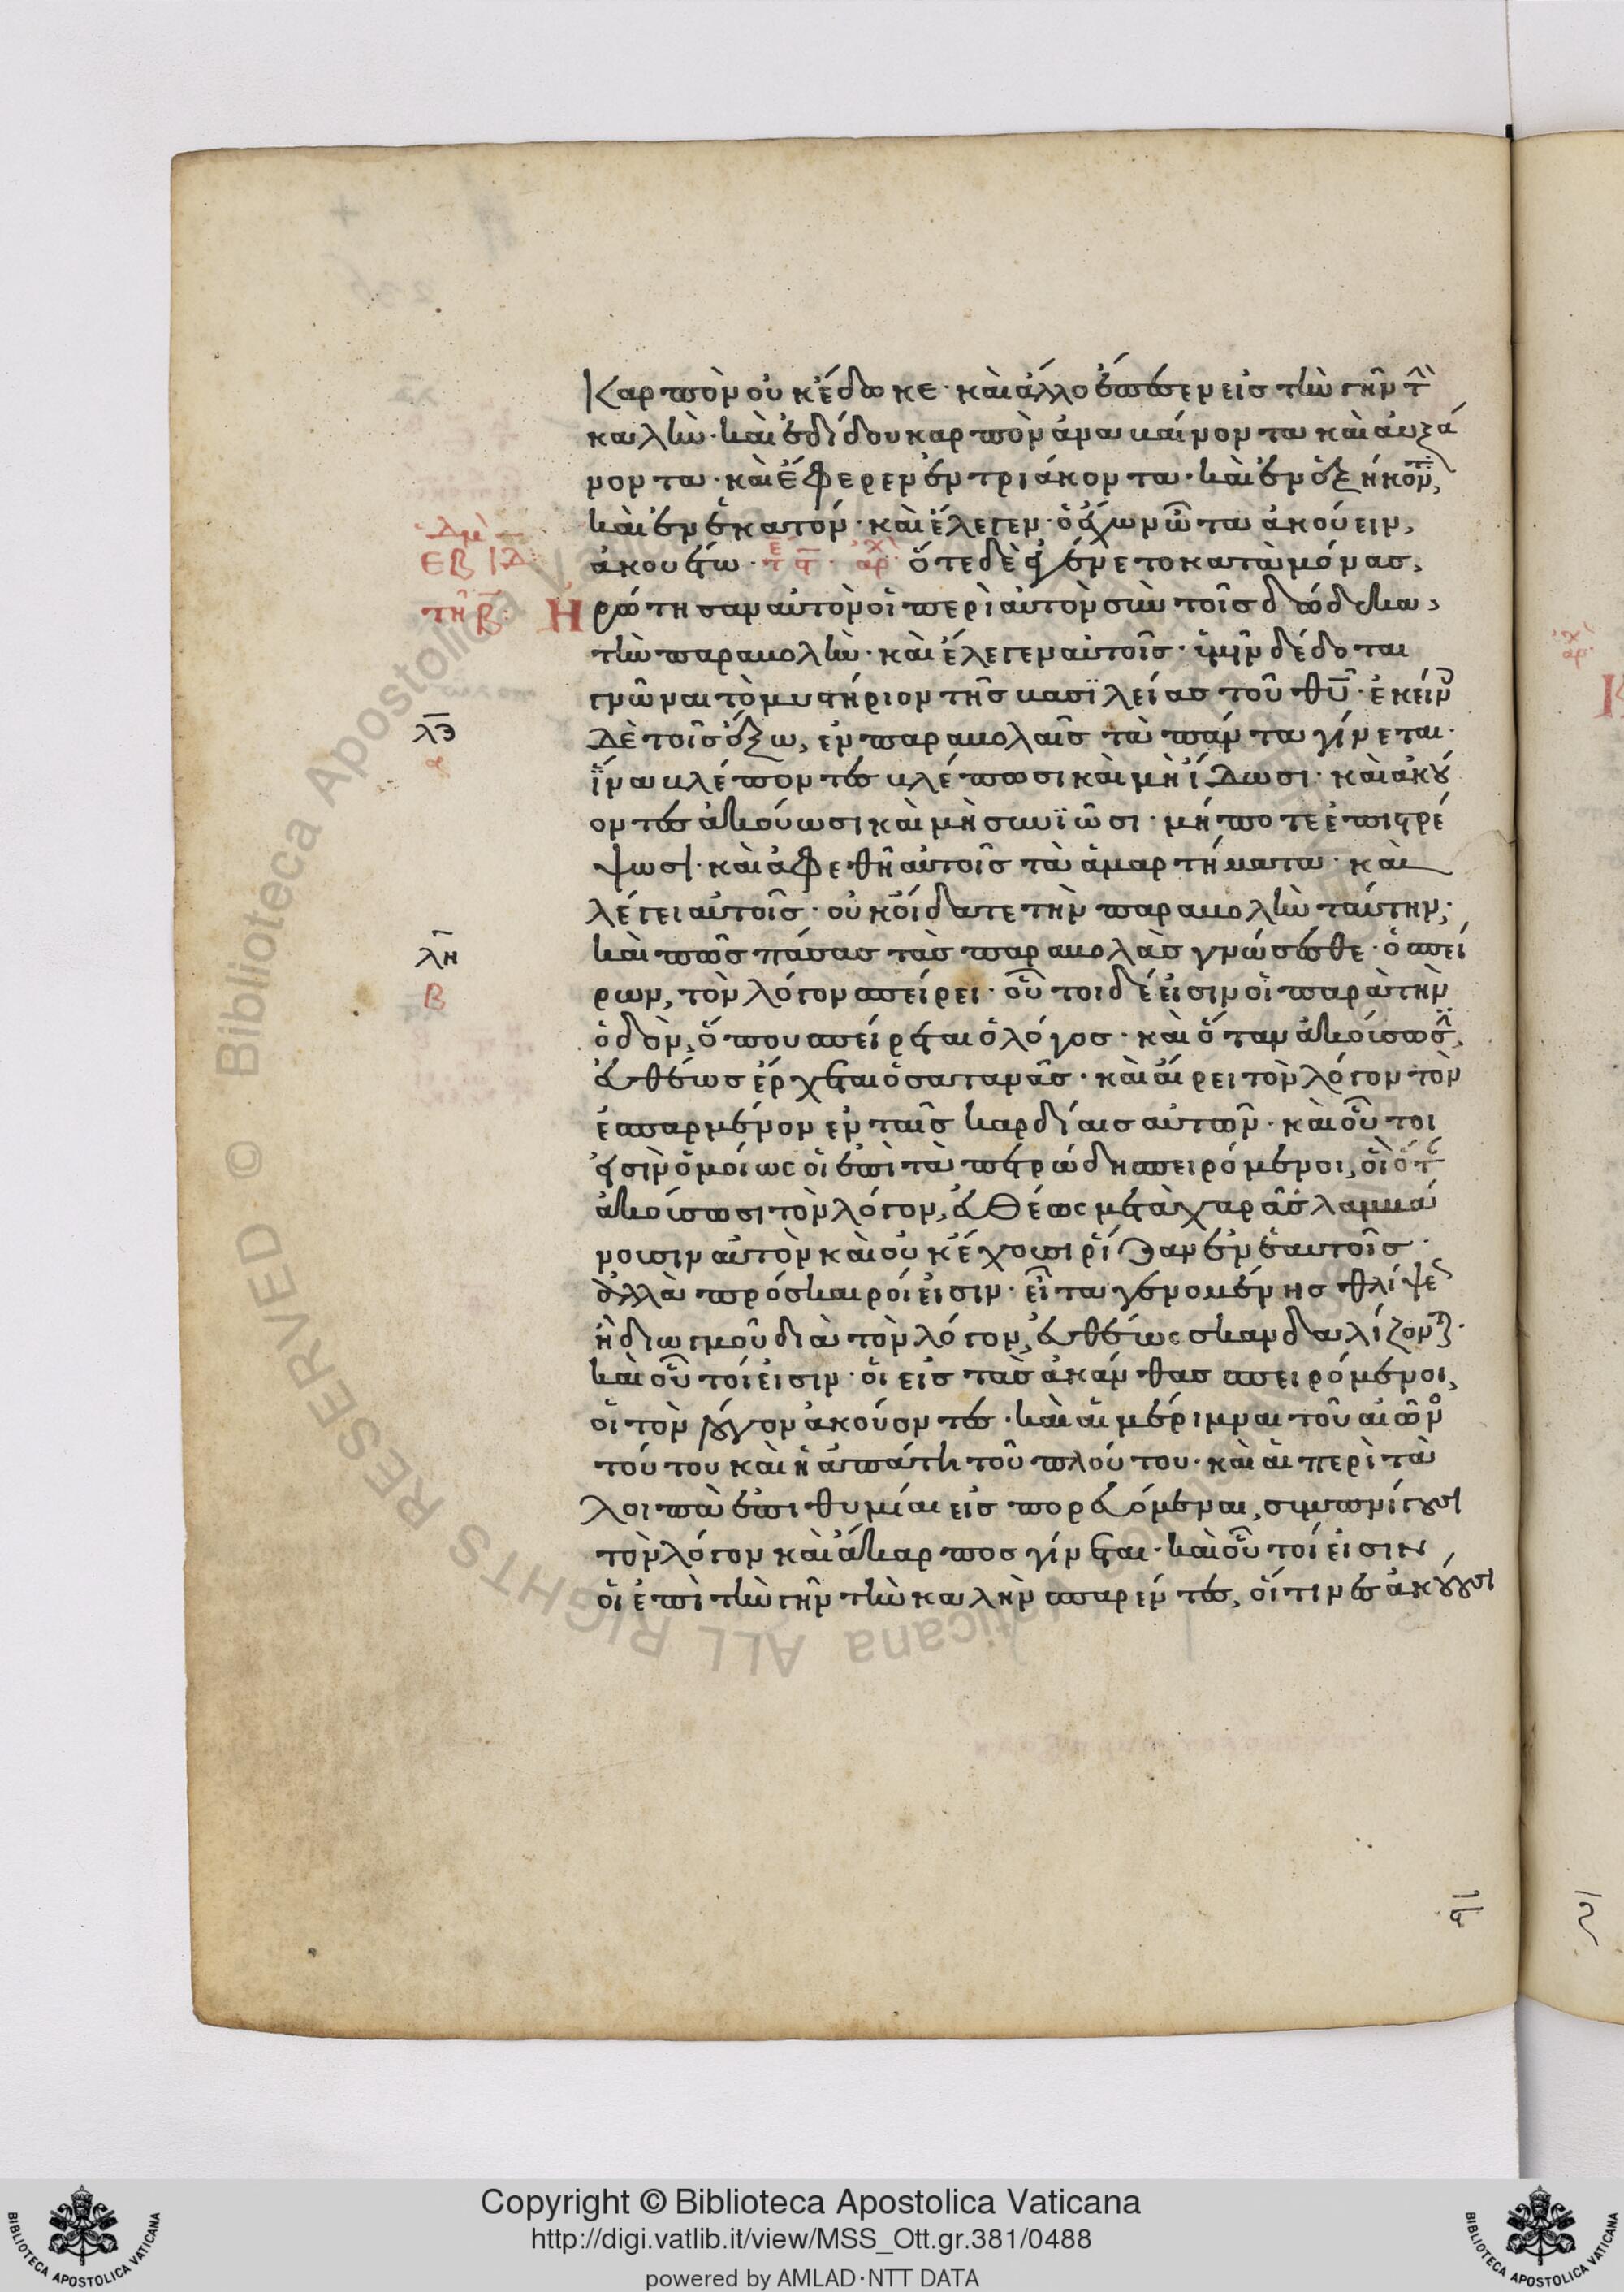 καρπὸν οὐκ ἔδωκε· καὶ ἄλλο ἔπεσεν εἰς τὴν γῆν τὴν
καλὴν· καὶ ἐδίδου καρπὸν ἀναβαίνοντα καὶ αὐξά
νοντα· καὶ ἔφερεν ἓν τριάκοντα· καὶ ἓν ἑξήκοντα,
καὶ ἓν ἑκατόν· καὶ ἔλεγεν· ὁ ἔχων ὦτα ἀκούειν,
ἀκουέτω· ὅτε δὲ ἐγένετο κατὰ μόνας,
Ἠρώτησαν αὐτὸν οἱ περὶ αὐτὸν σὺν τοῖς δώδεκα,
τὴν παραβολὴν· καὶ ἔλεγεν αὐτοῖς· ὑμῖν δέδοται
γνῶναι τὸ μυστήριον τῆς βασϊλείας τοῦ θυ· ἐκείνοις
λϛ
δὲ τοῖς ἔξω, ἐν παραβολαῖς τὰ πάντα γίνεται·
α
ἵνα βλέποντες βλέπωσι καὶ μὴ ἴδωσι· καὶ ἀκού
οντες ἀκούωσι καὶ μὴ συνϊῶσι· μήποτε ἐπιστρέ
ψωσι· καὶ ἀφεθῆ αὐτοῖς τὰ ἁμαρτήματα· καὶ
λέγει αὐτοῖς· οὐκ οἴδατε τὴν παραβολὴν ταύτην;
λη
καὶ πῶς πάσας τὰς παραβολὰς γνώσεσθε· ὁ σπεί
Β
ρων, τὸν λόγον σπείρει· οὗτοι δέ εἰσιν οἱ παρὰ τὴν
ὁδὸν, ὅπου σπείρεται ὁ λόγος· καὶ ὅταν ἀκούσωσιν,
εὐθέως ἔρχεται ὁ σατανᾶς· καὶ αἴρει τὸν λόγον τὸν
ἐσπαρμένον ἐν ταῖς καρδίαις αὐτῶν· καὶ οὗτοι
εἰσὶν ὁμοίως οἱ ἐπὶ τὰ πετρώδη σπειρόμενοι, οἳ ὅταν
ἀκούσωσι τὸν λόγον, εὐθέως μετὰ χαρᾶς λαμβά
νουσιν αὐτὸν καὶ οὐκ ἔχουσι ῥίζαν ἐν ἑαυτοῖς·
ἀλλὰ πρόσκαιροί εἰσιν· εἶτα γενομένης θλίψεως
ἢ διωγμοῦ διὰ τὸν λόγον, εὐθέως σκανδαλίζονται·
καὶ οὗτοί εἰσιν· οἱ εἰς τὰς ἀκάνθας σπειρόμενοι,
οἱ τὸν λόγον ἀκούοντες· καὶ αἱ μέριμναι τοῦ αἰῶνος
τούτου καὶ ἡ ἀπάτη τοῦ πλούτου· καὶ αἱ περὶ τὰ
λοιπὰ ἐπιθυμίαι εἰσπορευόμεναι, συμπνίγουσι
τὸν λόγον καὶ ἄκαρπος γίνεται· καὶ οὗτοί εἰσιν
οἱ ἐπὶ τὴν γῆν τὴν καλὴν σπαρέντες, οἵτινες ἀκούουσι
Copyright © Biblioteca Apostolica Vaticana
http://digi.vatlib.it/view/MSS_Ott.gr.381/0488
powered by AMLAD·NTT DATA
BIBLIOTECA APOSTOLICA VATICANA
BIBLIOTECA APOSTOLICA VATICANA
Biblioteca Apostolica Vaticana ALL RIGHTS RESERVED ©